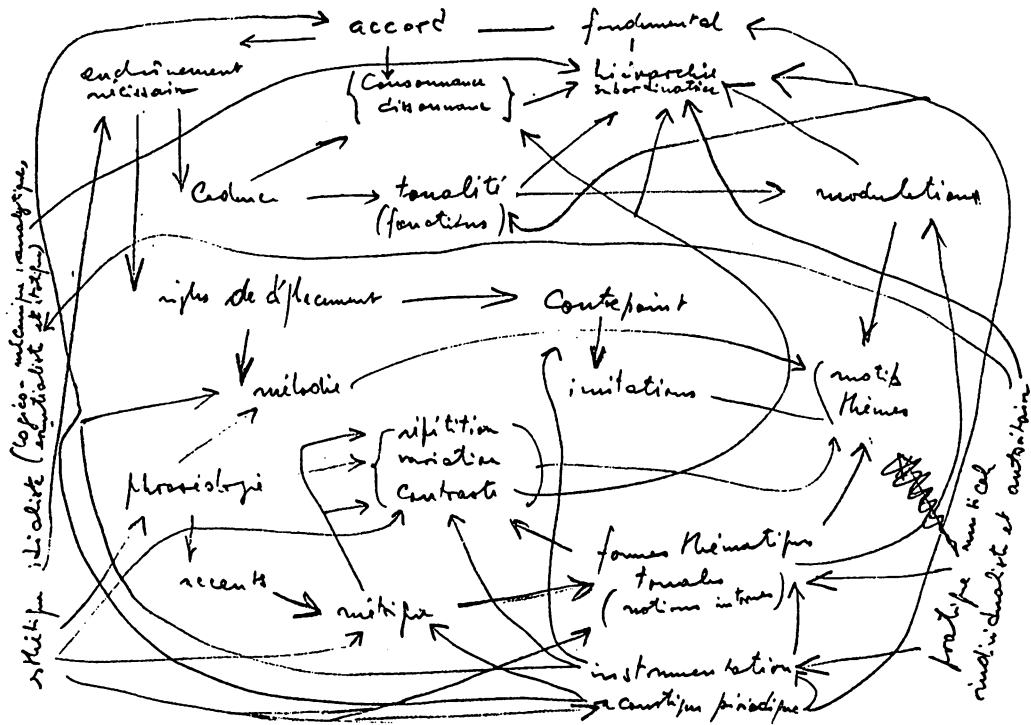 accord
fondamental
enchaînement
nécessaire
(consonnance
dissonnance
hiérarchie
subordination
Cadence
tonalité
(fonctions)
modulations
règles de déplacement
Contrepoint
mélodie
imitations
motifs
thèmes
répétition
variation
contraste
phraséologie
accents
métrique
formes thématiques
tonales
(notions internes)
instrumentation
acoustique périodique
esthétique idéaliste (logico-mécanique, analytique,
essentialiste et statique)
pratique musical
individualiste et autoritaire